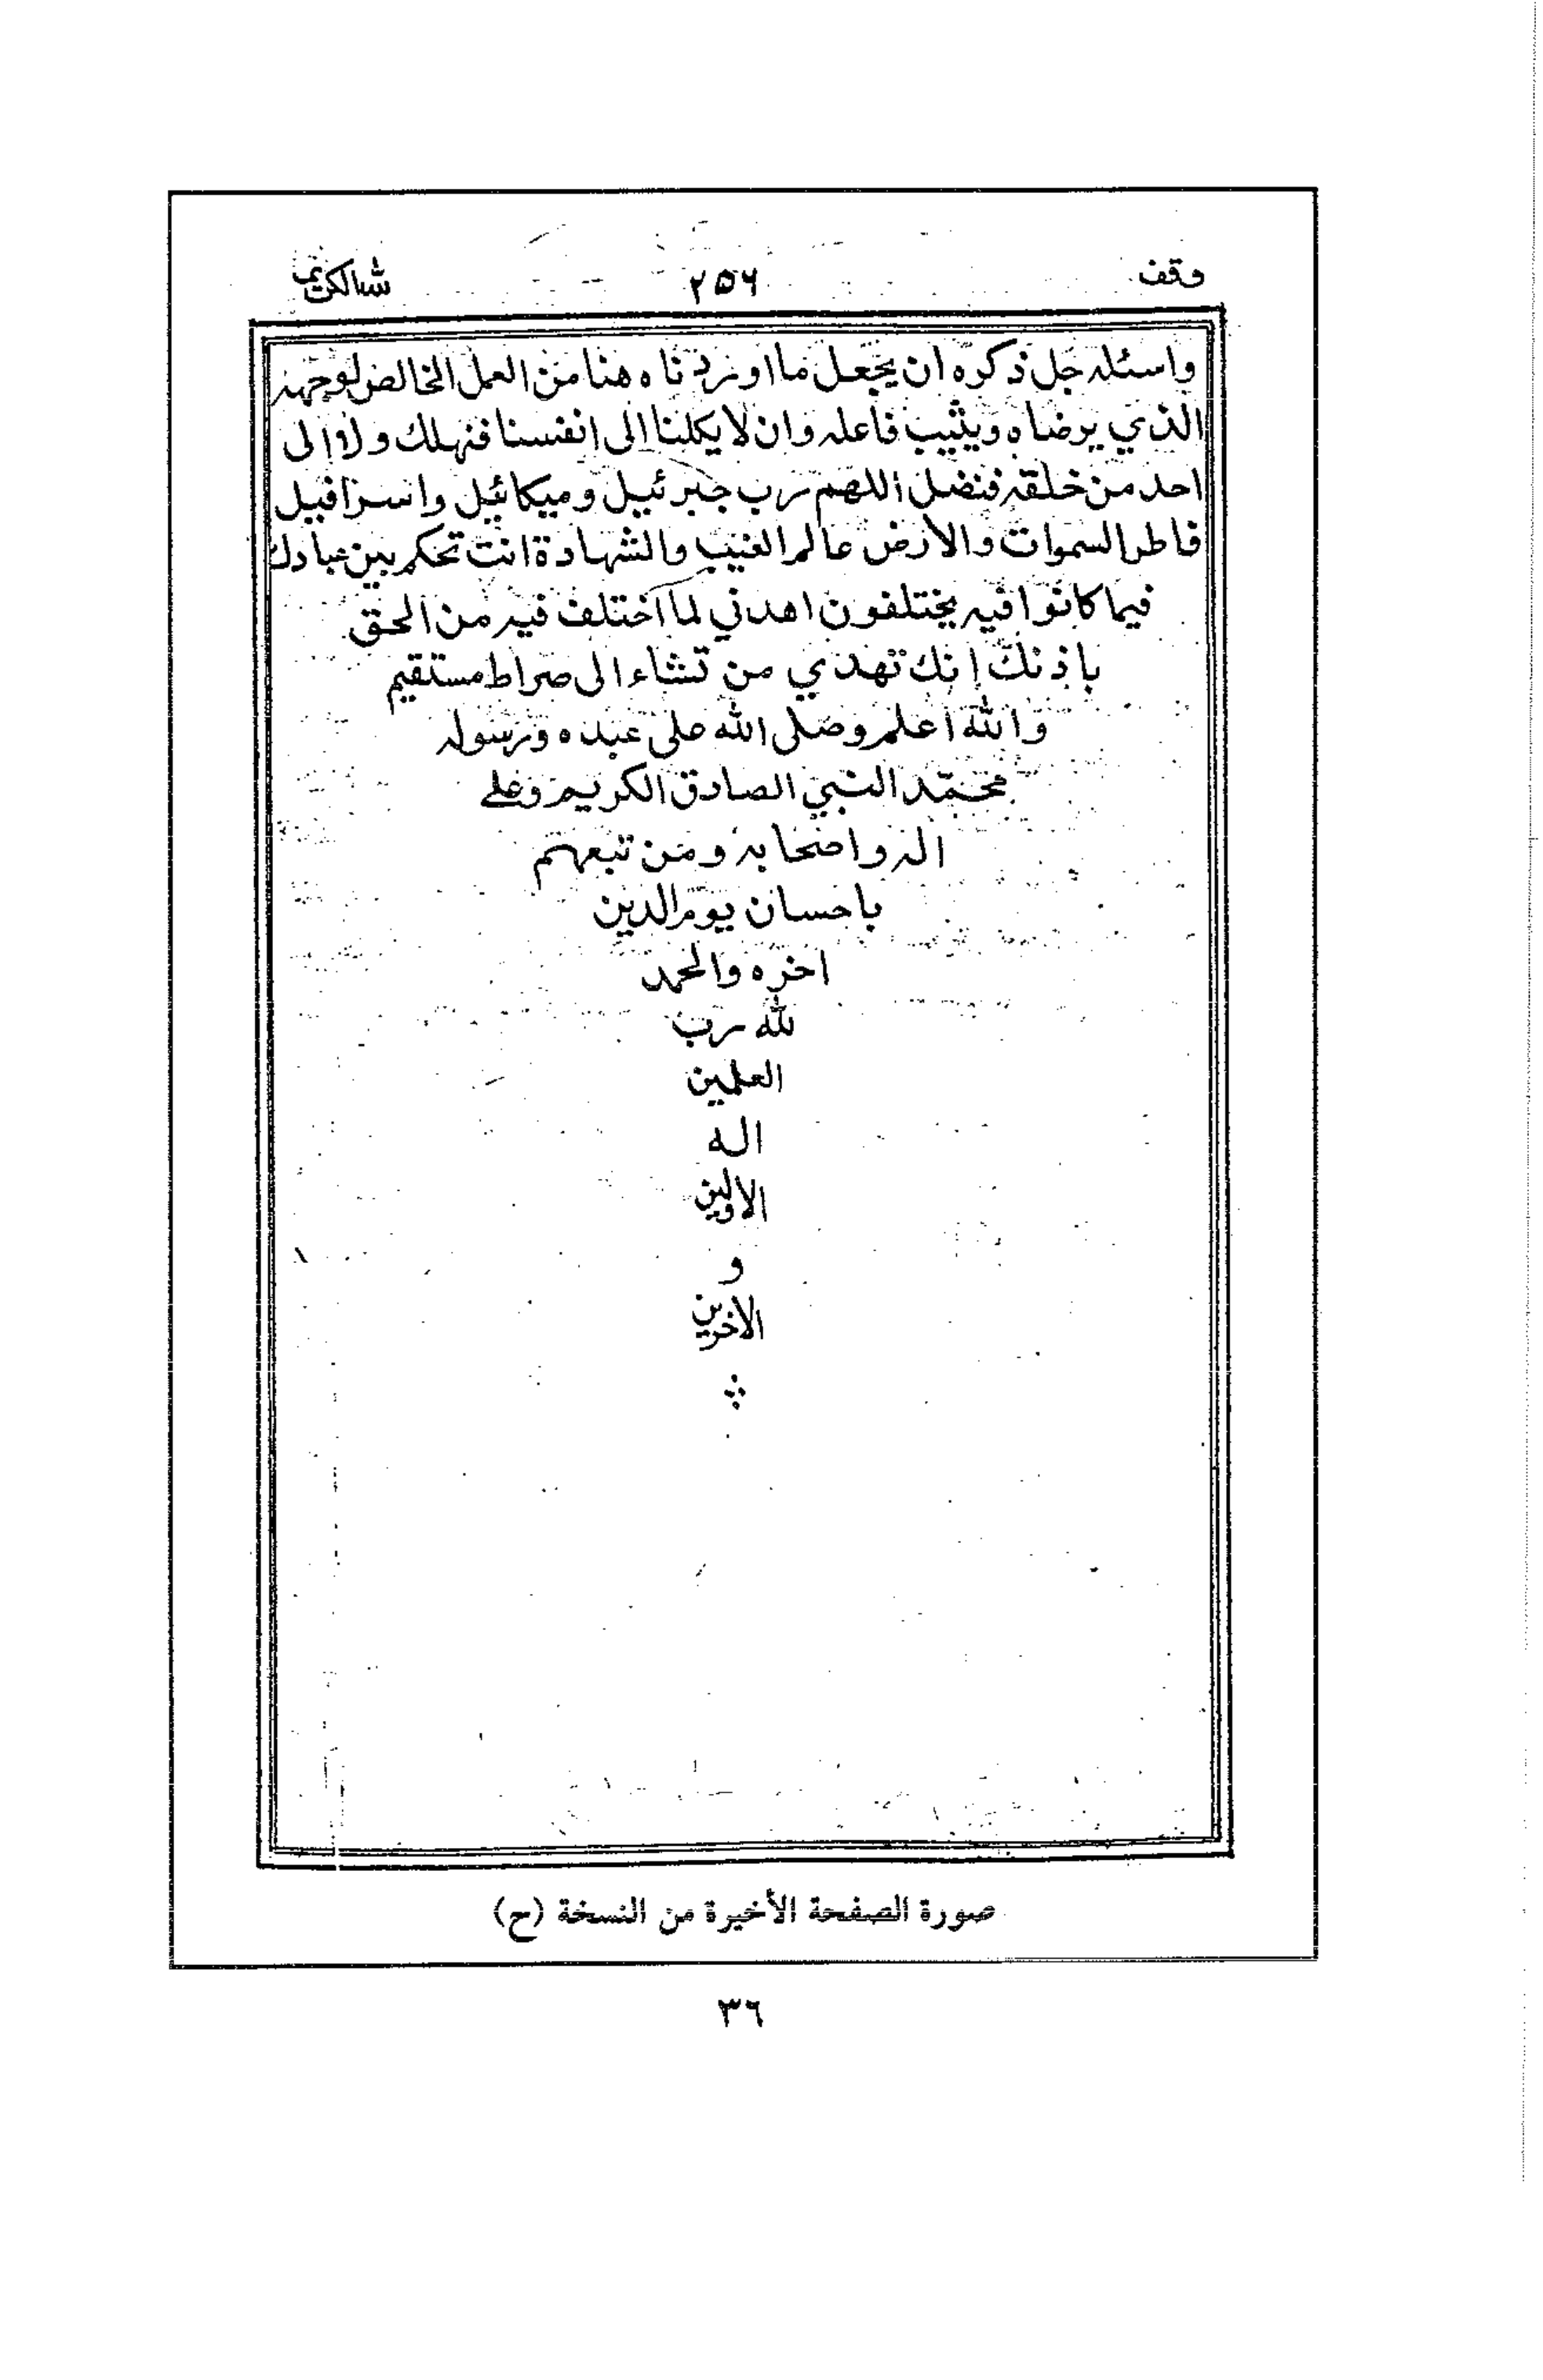 وقف ٢٥٦ لله الكريم
واسئله جل ذكره ان يجعل ما اوردناه هنا من العمل الخالص لوجهه
الذي يرضاه ويثيب فاعله وان لا يكلنا الى انفسنا فنهلك ولا الى
احد من خلقه فنضل اللهم رب جبرئيل وميكائيل واسرافيل
فاطر السموات والارض عالم الغيب والشهادة انت تحكم بين عبادك
فيما كانوا فيه يختلفون اهدني لما اختلف فيه من الحق
باذنك إنك تهدي من تشاء الى صراط مستقيم
والله اعلم وصلى الله على عبده ورسوله
محمّد النبي الصادق الكريم وعلى
اله واصحابه ومن تبعهم
باحسان يوم الدين
اخره والحمد
لله رب
العلمين
اله
الاولين
و
الاخرين
صورة الصفحة الأخيرة من النسخة (ح)
٣٦